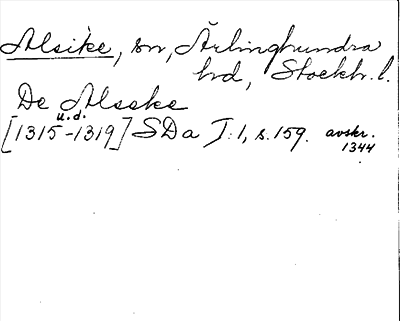 Alsike, sn, Ärlinghundra
hd, Stockh. l.
De Alseke
u.d.
[1315-1319] SDa I:1, s. 159. avskr.
1344